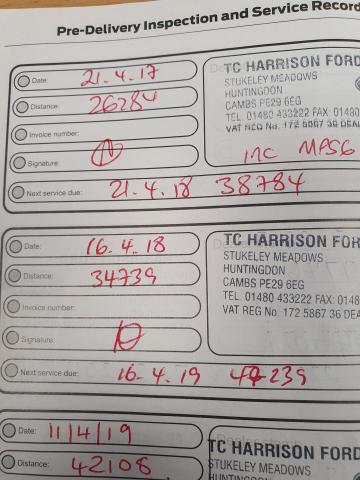 Pre-Delivery Inspection and Service Record
Date: 21.4.17
Distance: 26284
Invoice number:
Signature:
Next service due: 21.4.18 38784
TC HARRISON FORD
STUKELEY MEADOWS
HUNTINGDON
CAMBS PE29 6EG
TEL. 01480 433222 FAX: 01480
VAT REG No. 172 5867 36 DEAL
INC
Date: 16.4.18
Distance: 34739
Invoice number:
Signature:
Next service due: 16.4.19 47239
TC HARRISON FOR
STUKELEY MEADOWS
HUNTINGDON
CAMBS PE29 6EG
TEL. 01480 433222 FAX: 0148
VAT REG No. 172 5867 36 DEA
Date: 11/4/19
Distance: 42108
TC HARRISON FORD
STUKELEY MEADOWS
HUNTINGDON